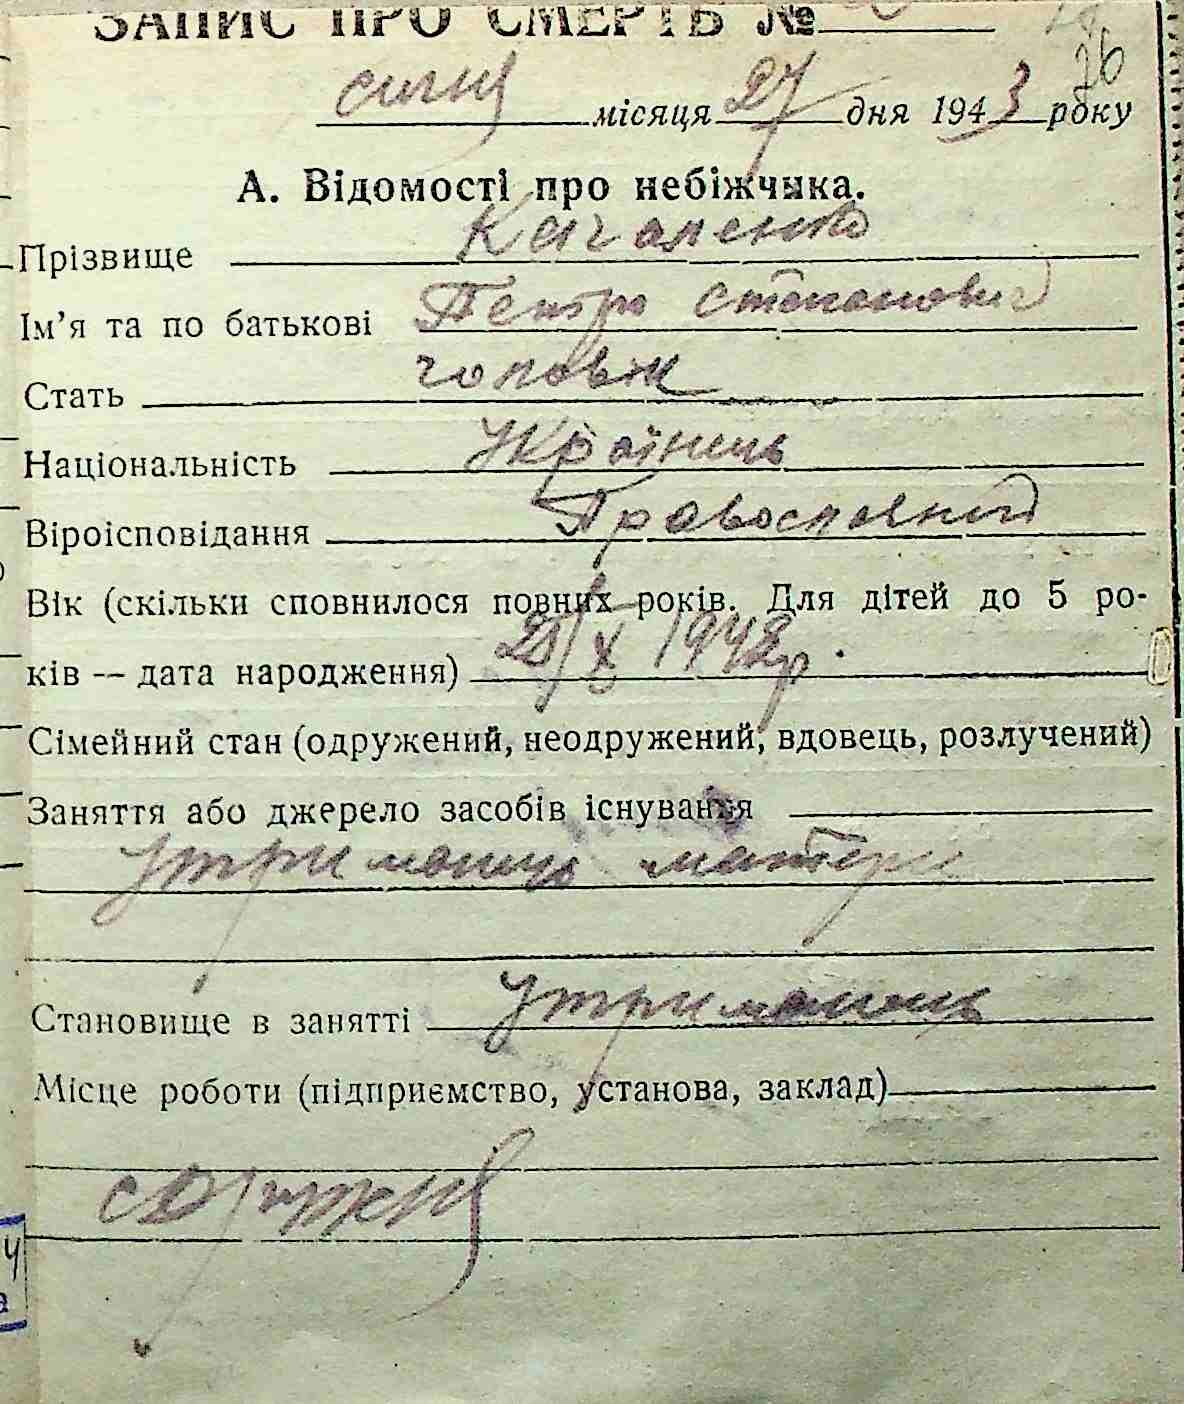 ЗАПИС ПРО СМЕРТЬ №
січня місяця 27 дня 1943 року
26
А. Відомості про небіжчика.
Прізвище
Ім’я та по батькові Петро Степанович
Стать чоловік
Національність Українець
Віроісповідання Православний
Вік (скільки сповнилося повних років. Для дітей до 5 ро-
ків — дата народження) X 1942р.
Сімейний стан (одружений, неодружений, вдовець, розлучений)
Заняття або джерело засобів існування
утриманець матери
Становище в занятті утриманець
Місце роботи (підприємство, установа, заклад)